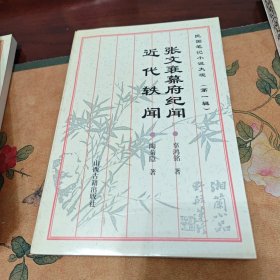 民国笔记小说大观（第一辑）
张文襄幕府纪闻
辜鸿铭 著
近代轶闻
陶菊隐 著
山西古籍出版社
湘兰小品